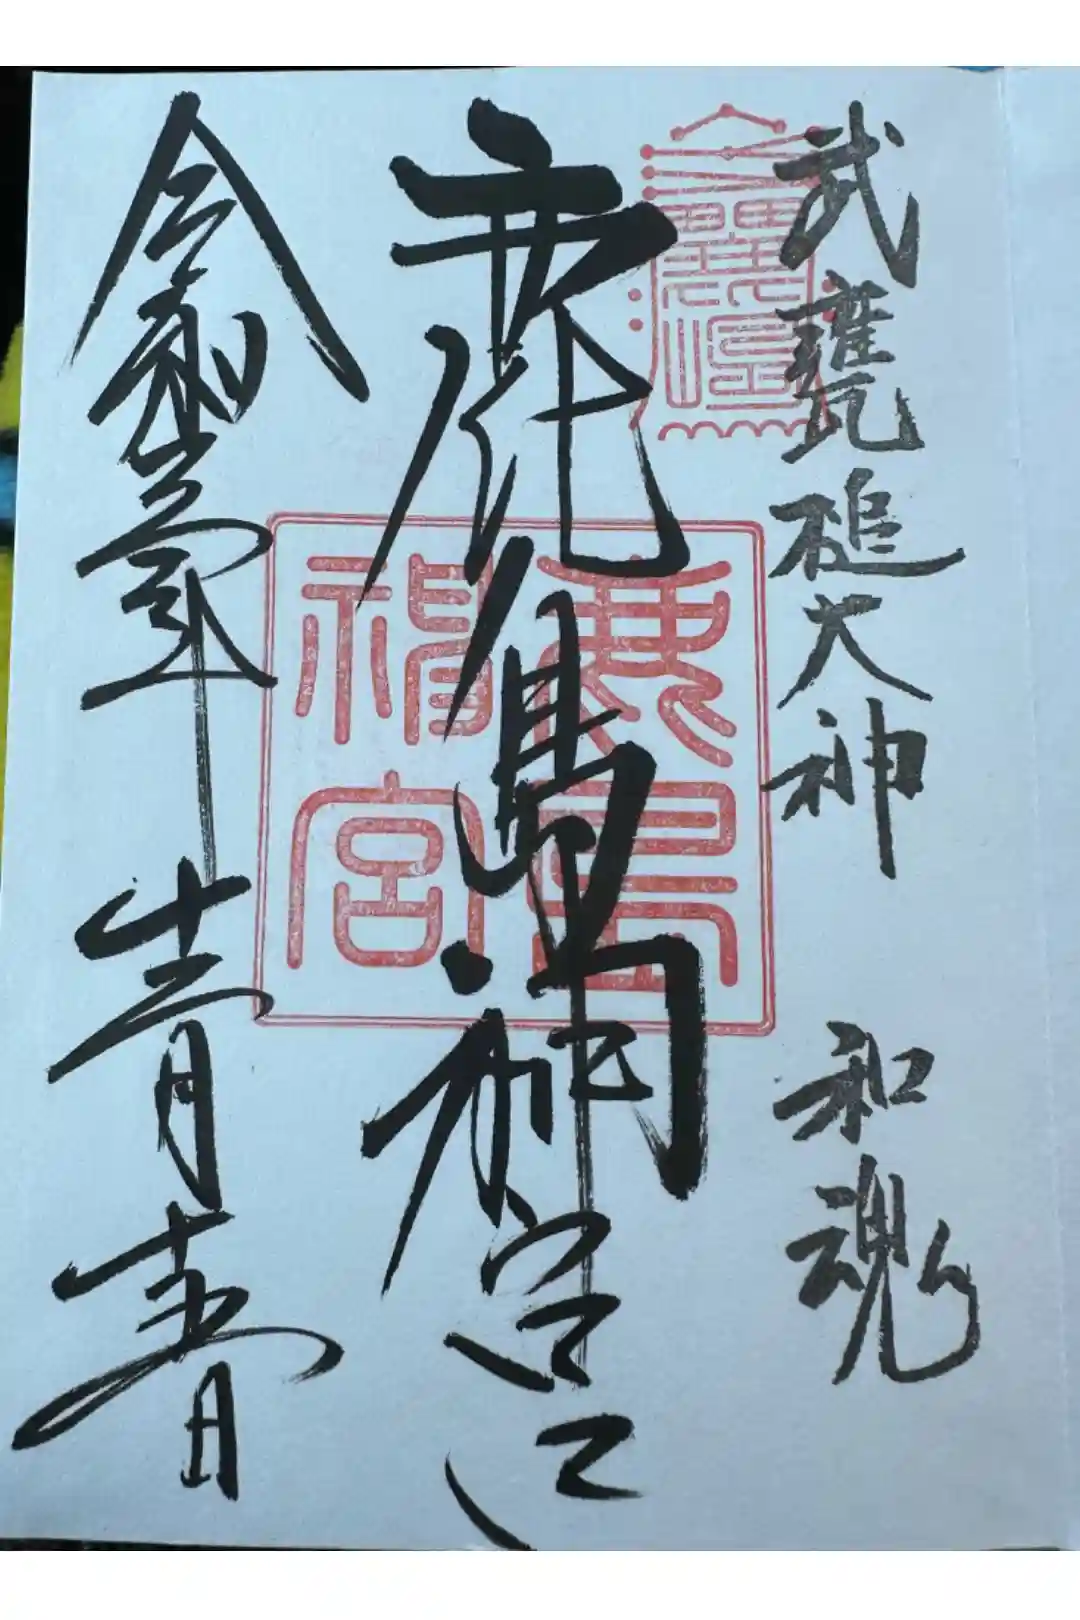 武甕槌大神 和魂
鹿島神宮
鹿島神宮
令和 年 十二月 十五日